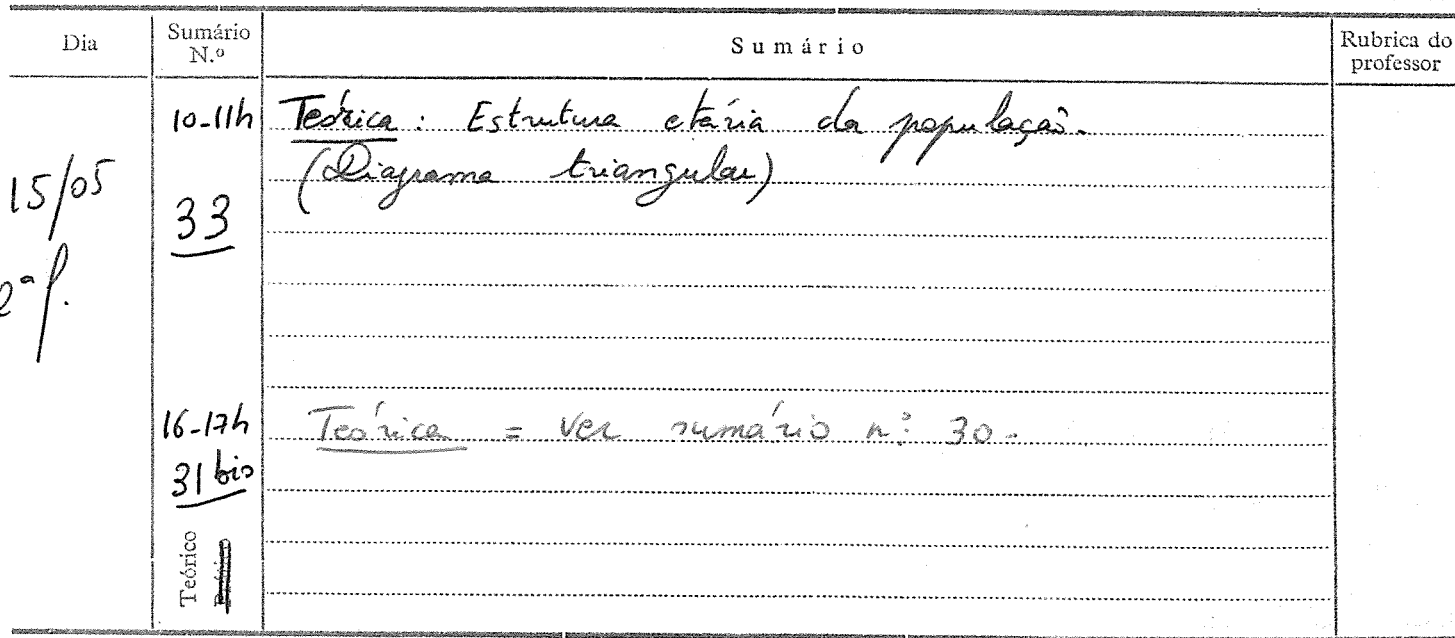 Dia
Sumário N.º
Sumário
Rubrica do professor
15/05
2ª f.
10-11h
33
Teórica: Estrutura etária da população.
(Diagrama triangular)
16-17h
31 bis
Teórico
Teórica = ver sumário n.º 30.